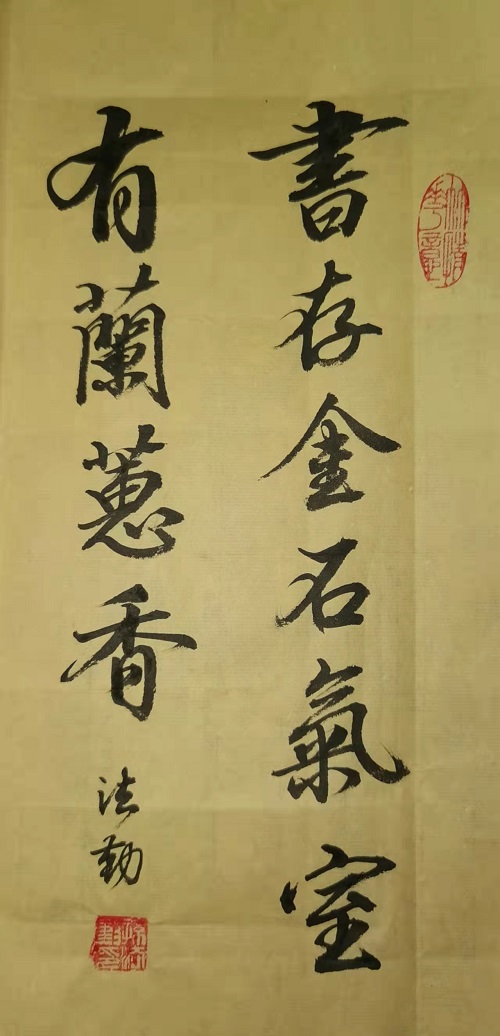 書存金石氣室
有蘭蕙香
法勤